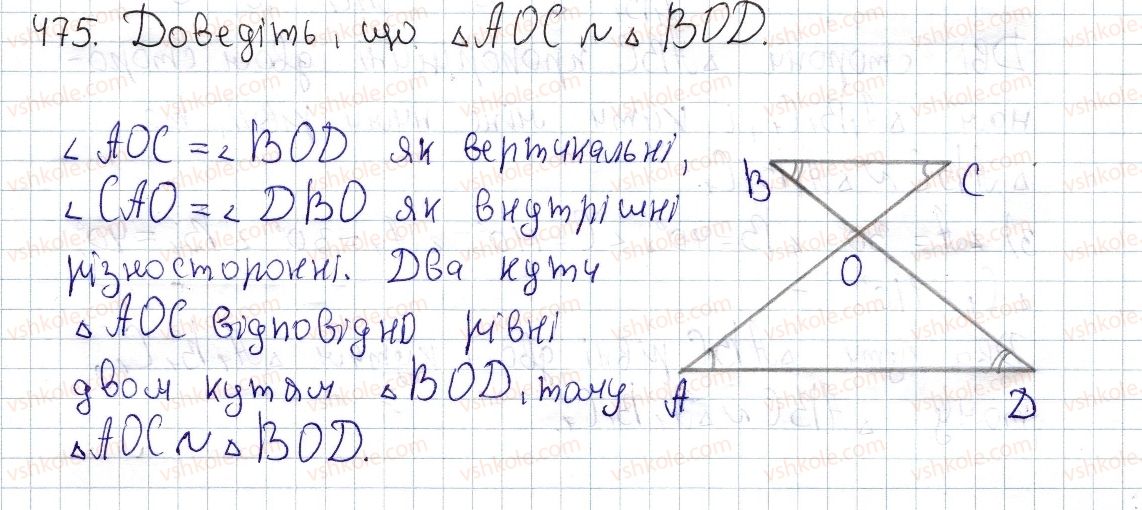 475. Доведіть, що △AOC ~ △BOD.
∠AOC = ∠BOD як вертикальні,
∠CAO = ∠DBO як внутрішні
різносторонні. Два кути
△AOC відповідно рівні
двом кутам △BOD, тому
△AOC ~ △BOD.
B C
O
A D